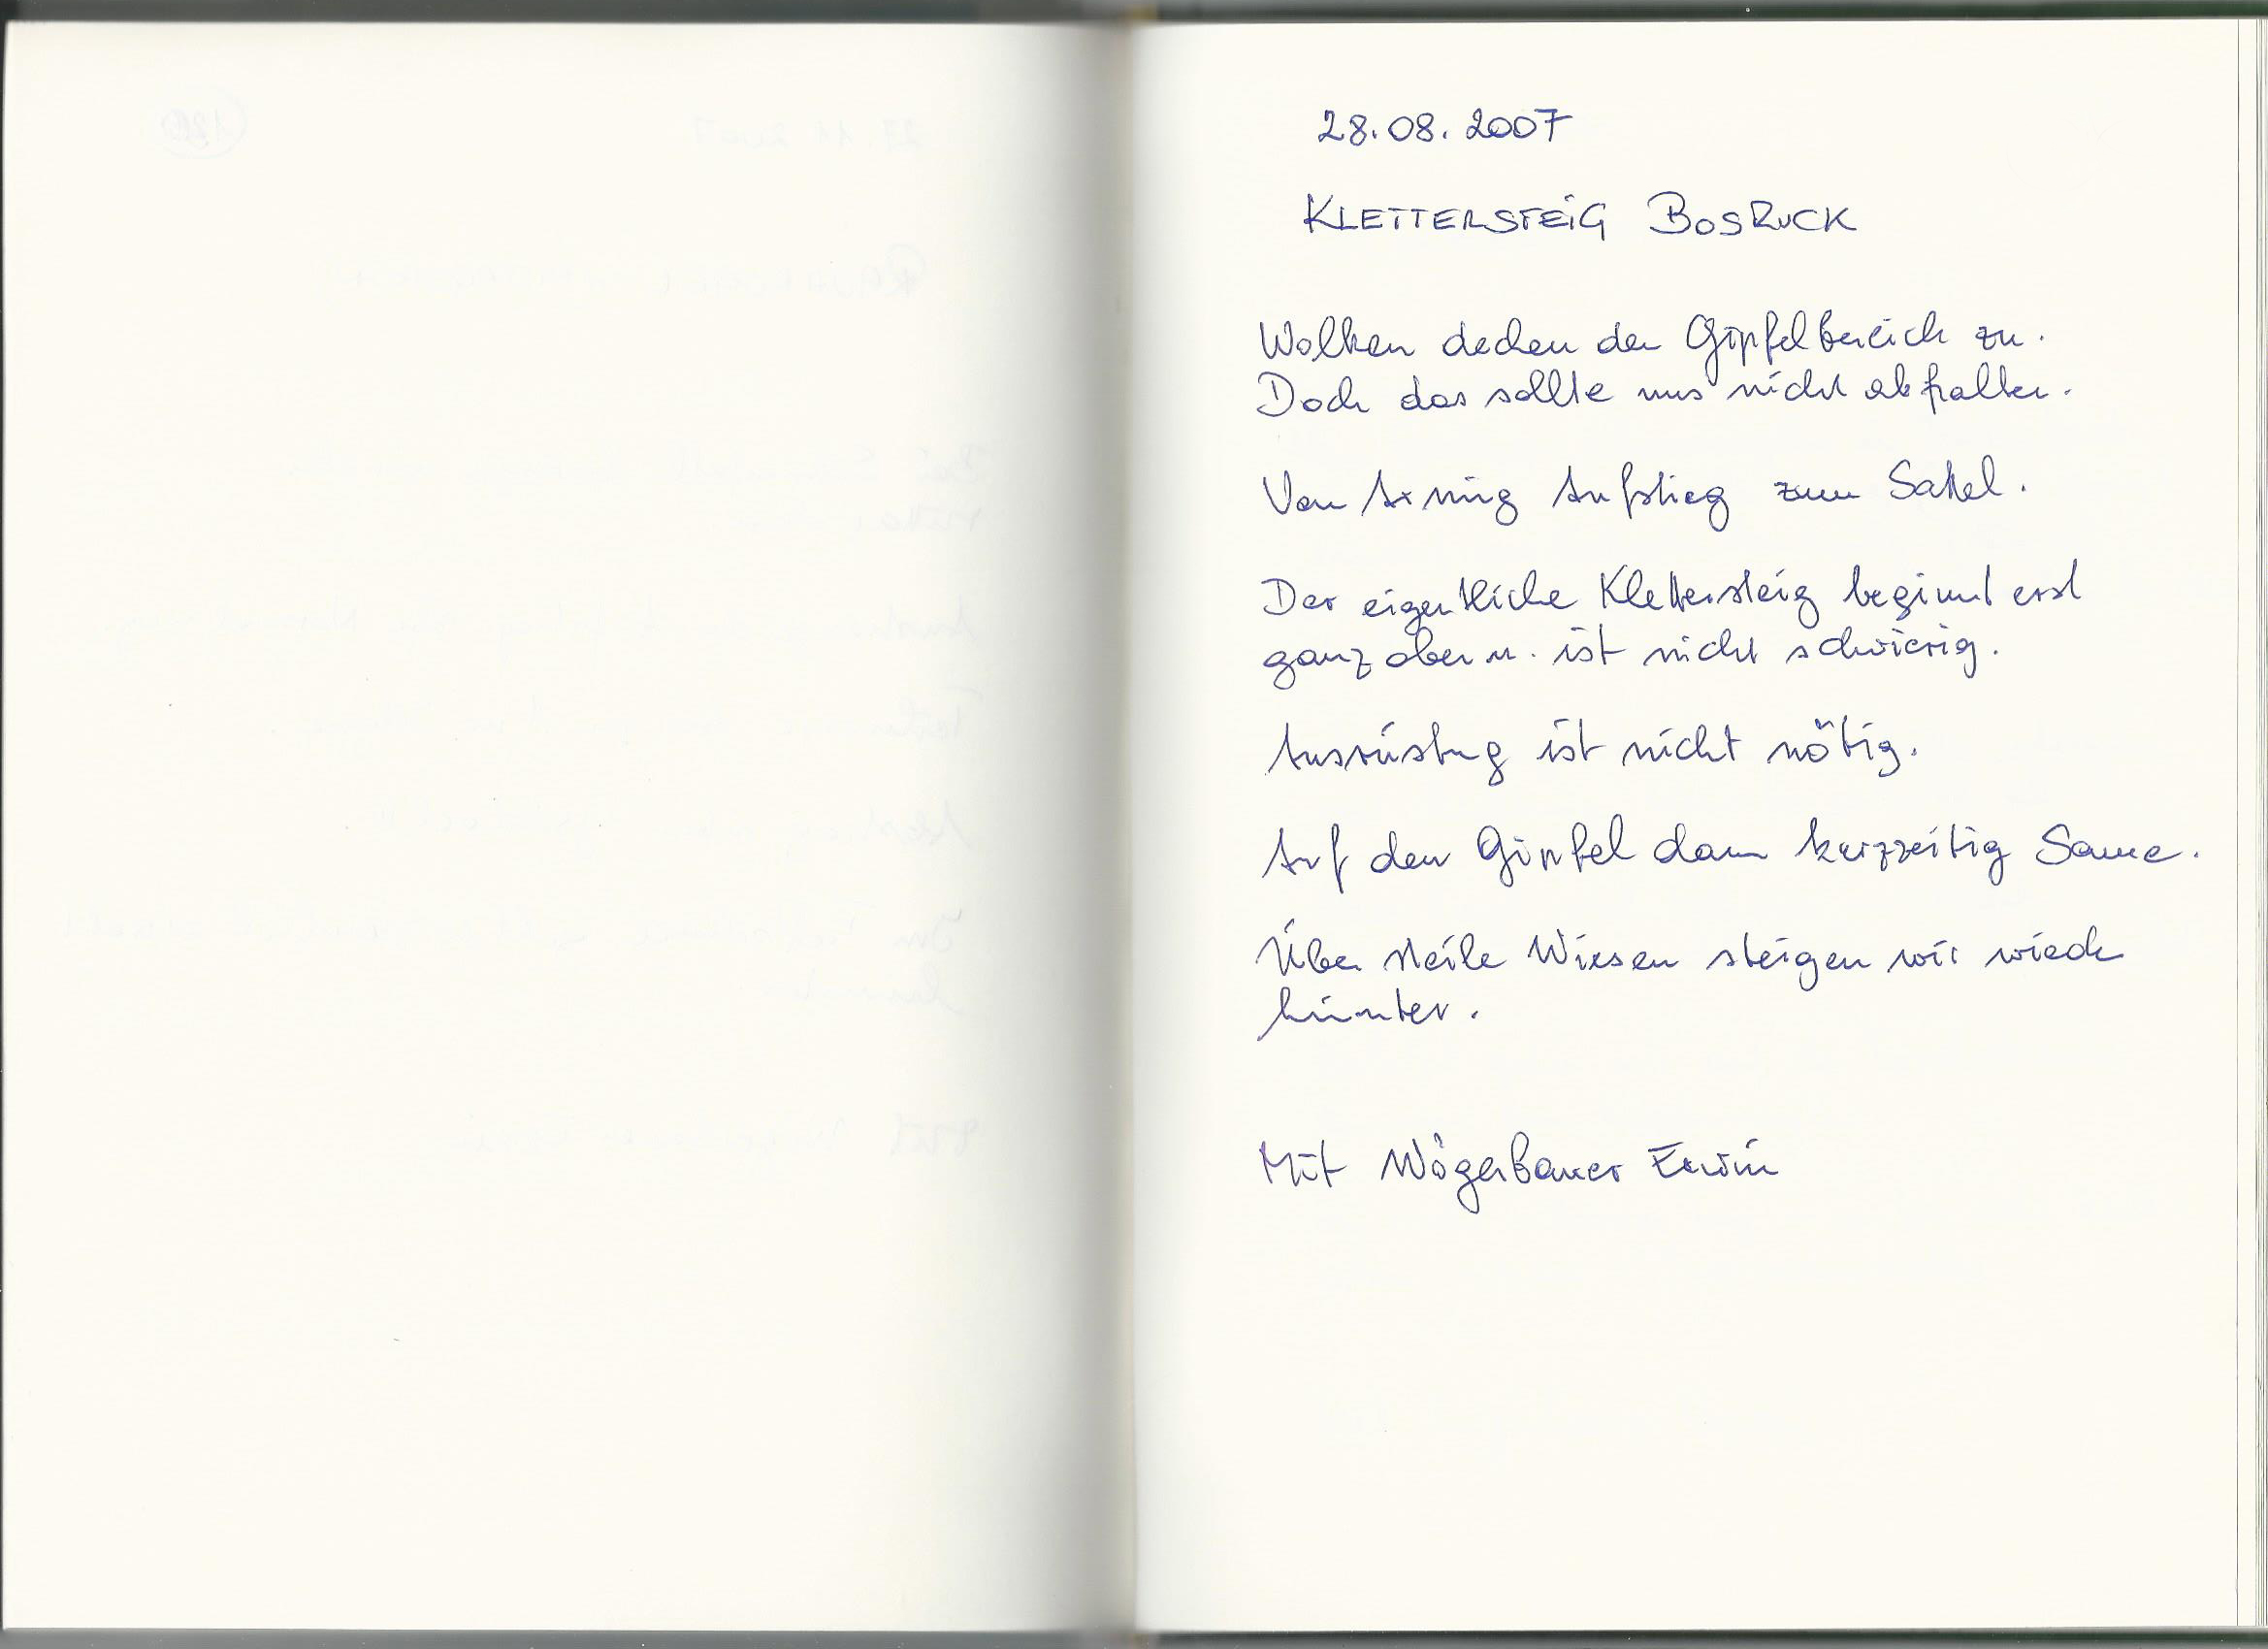 28.08.2007
KLETTERSTEIG BOSRUCK
Wolken decken den Gipfelbereich zu.
Doch das sollte uns nicht abhalten.
Von Arning Aufstieg zum Sattel.
Der eigentliche Klettersteig beginnt erst
ganz oben u. ist nicht schwierig.
Ausrüstung ist nicht nötig.
Auf den Gipfel dann kurzzeitig Sonne.
Über steile Wiesen steigen wir wieder
hinunter.
Mit Wögerbauer Erwin